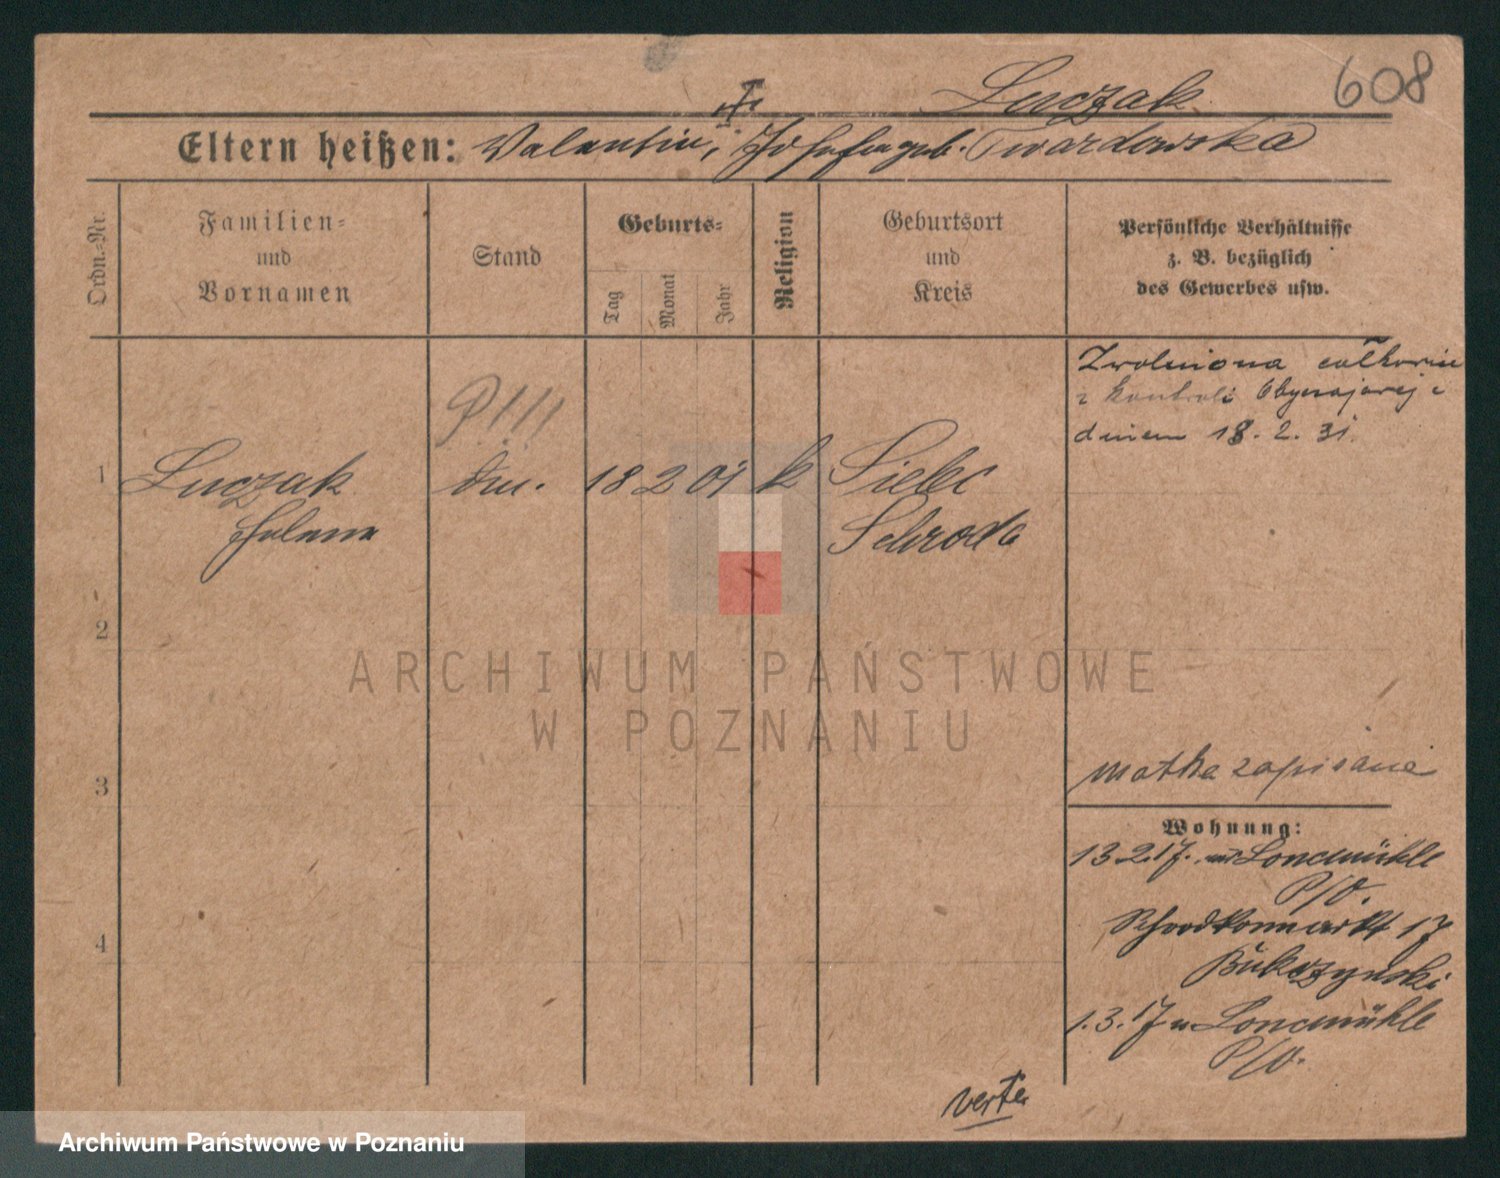 608
Luczak
Eltern heißen: Valentin, Josefa geb. Twardowska
Ordn.-Nr.
Familien-
und
Vornamen
Stand
Geburts-
Tag
Monat
Jahr
Religion
Geburtsort
und
Kreis
Persönliche Verhältnisse
z. B. bezüglich
des Gewerbes usw.
Zwolniona całkowicie
z kontroli obyczajowej z
dniem 18. 2. 31.
1
Luczak
Helena
18 2 01 k
Sielec
Schroda
2
3
4
matka zapisana
Wohnung:
13 2.17. Loncmühle
P/O.
17
1.3.17 Loncmühle
P/O.
verte
ARCHIWUM PAŃSTWOWE
W POZNANIU
Archiwum Państwowe w Poznaniu